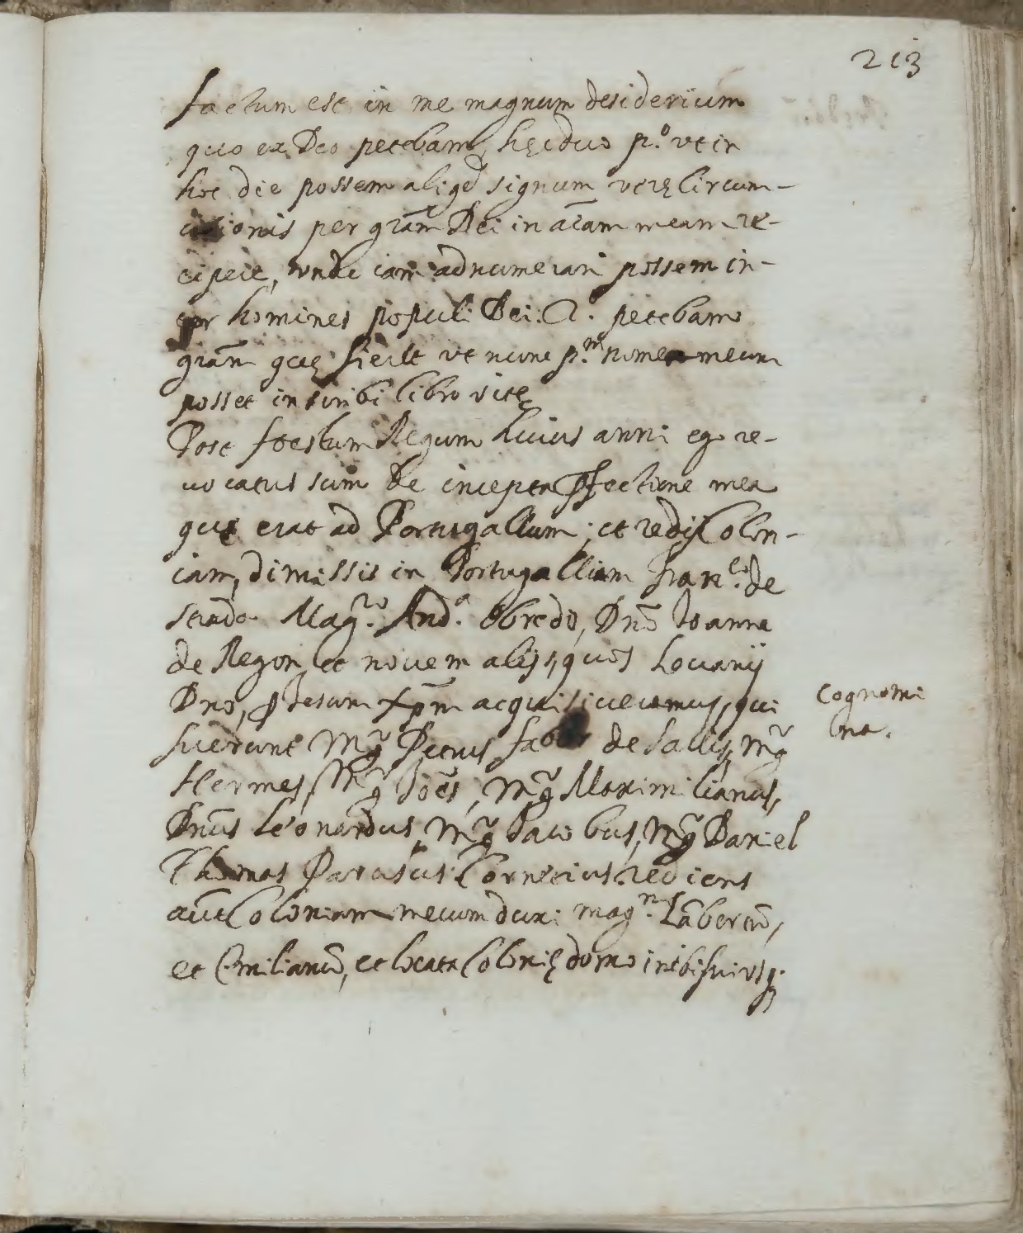 213
factum est in me magnum desiderium
quo ex Deo petebam hęc duo pº. ut in
hoc die possem aliqd signum verę Circum-
cisionis per grãm Dei in aĩam meam re-
cipere, unde iam adnumerari possem in-
ter homines populi Dei. 2º. petebam
grãm quę fieret ut nunc p.m nomen meum
posset inscribi libro vitę
Post festum Regum huius anni ego re-
vocatus sum de incepta profectione mea
quę erat ad Portugallium, et redij Colon-
iam, dimissis in Portugalliam Franco. de
Strada Magro. And.a Obredo, Dnõ Joanne
de Regon, et novem alijs, quos Lovanij
Dno, p Jesum Xpm acquisiveramus, qui
fuerunt Mgr Petrus faber de Salis, Mgr
Hermes, Mgr Joẽs, Mgr Maximilianus,
Dnus Leonardus, Mgr Jacobus, Mgr Daniel
Thomas Cornelius. rediens
aut Coloniam mecum duxi magrm Lãbertũ,
et Emilianũ, et locata Colonię domo inibi
Cognomi
na.